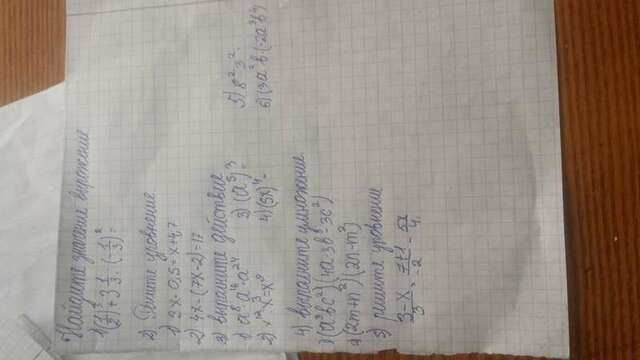 Найдите значение выражение
1) (1/2)² + 3 1/3 : (-1/3)² =
2) Решите уровнение
1) 2x - 0,5 = x + 4,7
2) 4x - (7x - 2) = 17
3) выполните действие
1) a⁸ · a⁴ · a²⁴ 3) (a⁵)³ = 5) 8² · 3² ·
2) x¹² : x³ = x⁹ 4) (5x)⁴ - 6) (3a²b · (-2a³b⁴)
4) выполните умложение
1) (a³bc²)(4a - 3b³ - 3c²)
2) (2m + n²)(2n - m²)
5) решите уровнение
3-x/3 = 7+1/-2 - 5x/4